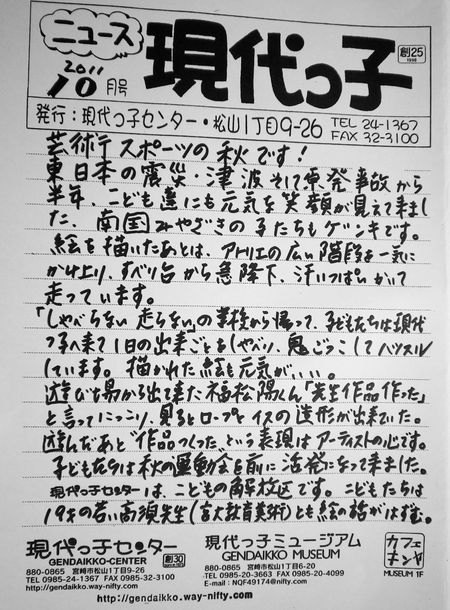 ニュース 現代っ子 創25
1998
2011
10月号
発行：現代っ子センター・松山1丁目9-26 TEL 24-1367
FAX 32-3100
芸術テスポーツの秋です！
東日本の震災・津波そして原発事故から
半年、こども達にも元気な笑顔が見えて来まし
た。南国みやざきの子たちもゲンキです。
絵を描いたあとは、アトリエの広い階段を一気に
かけ上り、すべり台から急降下、汗いっぱいかいて
走っています。
「しゃべらない走らない」の学校から帰って、子どもたちは現代
っ子へ来て1日の出来ごとをしゃべり、鬼ごっこしてハッスル
しています。描かれた絵も元気がいい。
遊び場から出て来た福松陽くん「先生作品作った」
と言ってにっこり、見るとロープとイスの造形が出来ていた。
遊んだあと"作品つくった"という表現はアーティストの心です。
子どもたちは秋の運動会を前に活発になって来ました。
現代っ子センターは、こどもの解放区です。こどもたちは
19才の若い高須先生（宮大教育美術）とも絵の話がはずむ。
現代っ子センター 創30
GENDAIKKO-CENTER
880-0865 宮崎市松山1丁目9-26
TEL 0985-24-1367 FAX 0985-32-3100
http://gendaikko.way-nifty.com/
現代っ子ミュージアム
GENDAIKKO MUSEUM
880-0865 宮崎市松山1丁目6-20
TEL 0985-20-3663 FAX 0985-20-4099
E-mail : NQF49174@nifty.com
カフェ
MUSEUM 1F
http://gendaikko.way-nifty.com